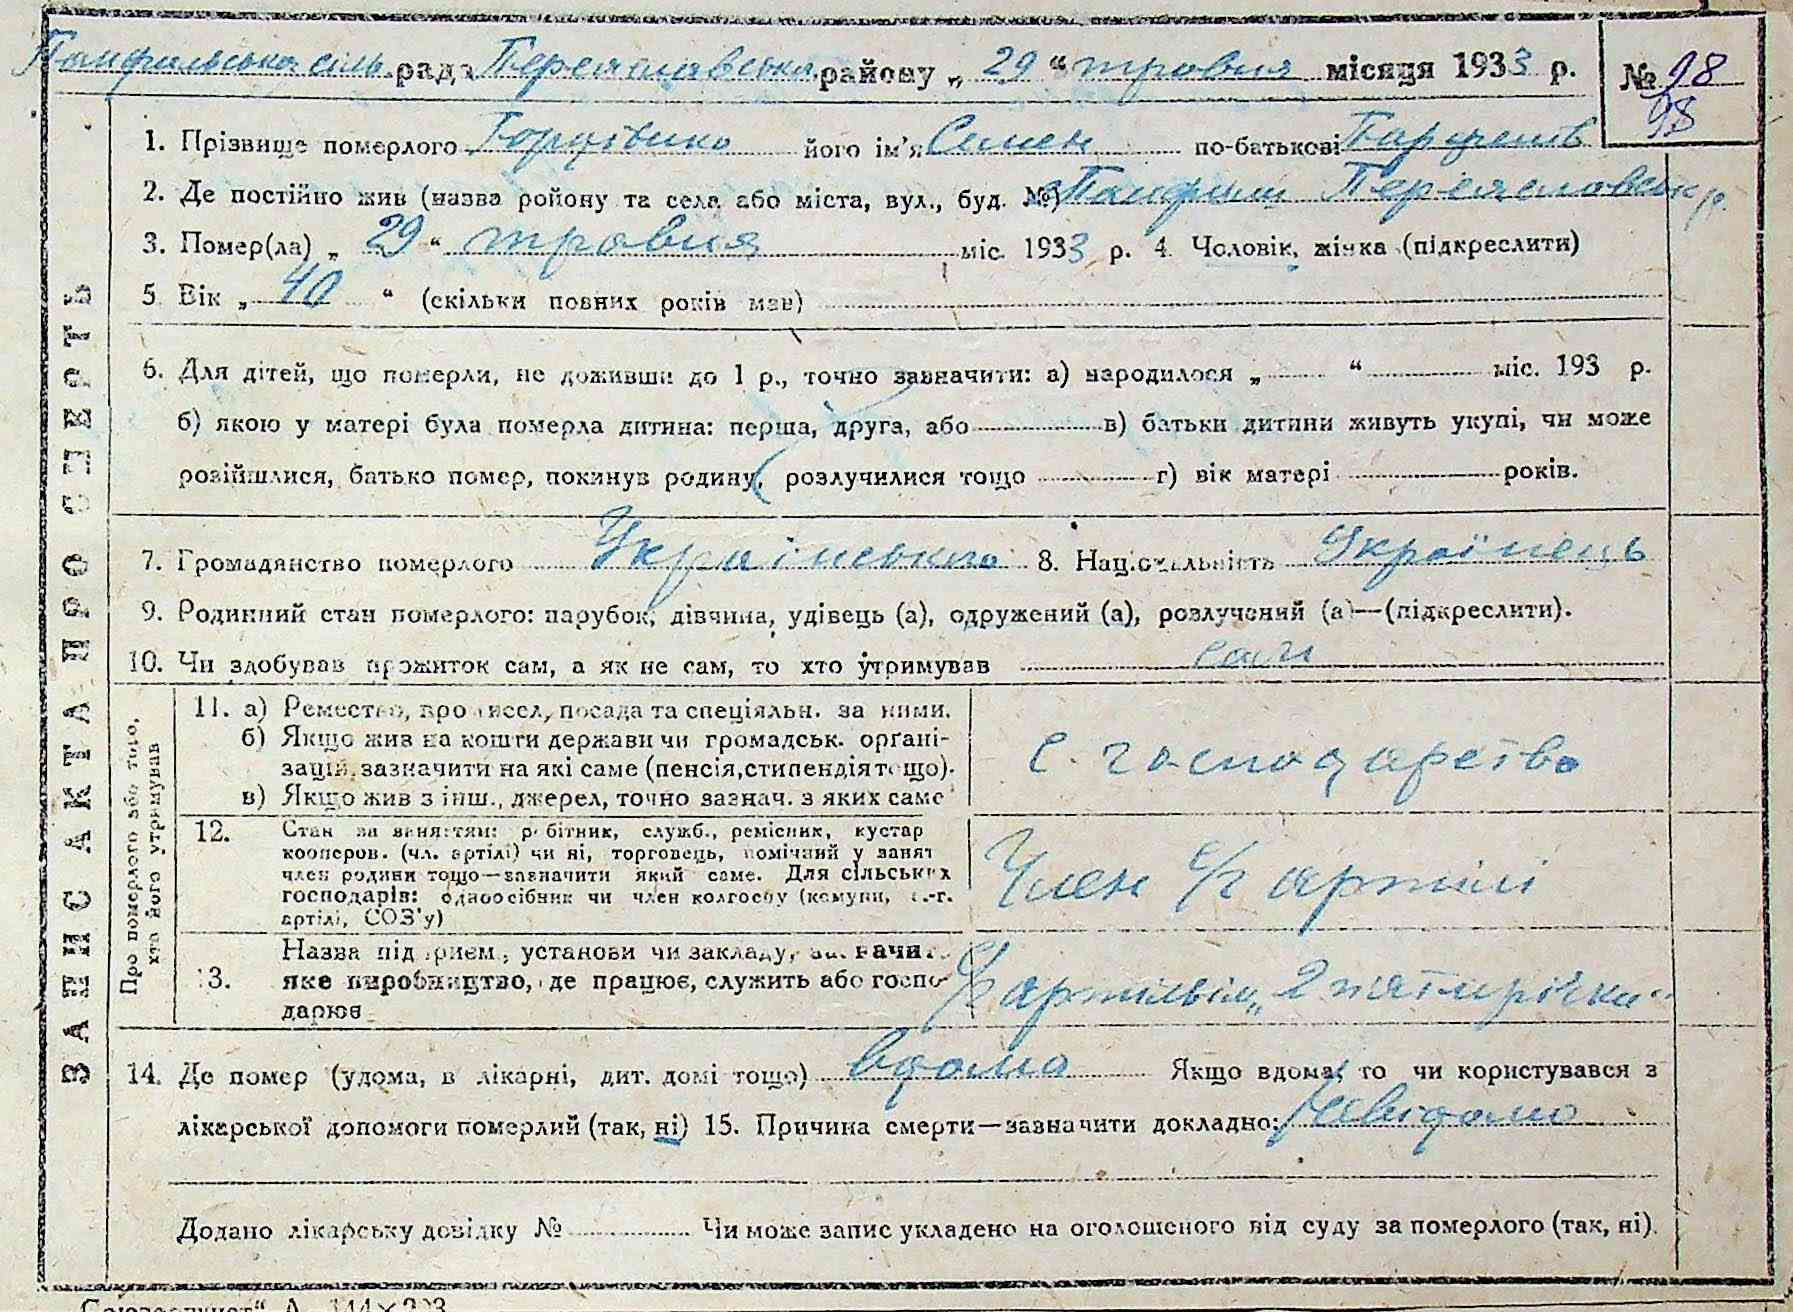 Панфильська сіль. рада Переяславська району „ 29 “ травня місяця 1933 р.
№ 98
98
ЗАПИС АКТА ПРО СМЕРТЬ
1. Прізвище померлого його ім’я Семен по-батькові Парфенів
2. Де постійно жив (назва району та села або міста, вул., буд. №) Панфили Переяславськ р.
3. Помер(ла) „ 29 “ травня міс. 1933 р. 4. Чоловік, жінка (підкреслити)
5 Вік „ 40 “ (скільки повних років мав)
6. Для дітей, що померли, не доживши до 1 р., точно зазначити: а) народилося „ “ міс. 193 р.
б) якою у матері була померла дитина: перша, друга, або в) батьки дитини живуть укупі, чи може
розійшлися, батько помер, покинув родину, розлучилися тощо г) вік матері років.
7. Громадянство померлого Українського 8. Національність Українець
9. Родинний стан померлого: парубок, дівчина, удівець (а), одружений (а), розлучений (а)—(підкреслити).
10. Чи здобував прожиток сам, а як не сам, то хто утримував сам
Про померлого або того,
хто його утримував
11. а) Ремество, промисел, посада та спеціяльн. за ними.
б) Якщо жив на кошти держави чи громадськ. органі-
зацій, зазначити на які саме (пенсія, стипендія тощо).
в) Якщо жив з інш., джерел, точно зазнач. з яких саме
с. господарство
12. Стан за заняттям: робітник, служб., ремісник, кустар
кооперов. (чл. артілі) чи ні, торговець, помічний у занят
член родини тощо—зазначити який саме. Для сільських
господарів: одноосібник чи член колгоспу (комуни, с.-г.
артілі, СОЗ’у)
Член с/г артілі
13. Назва підприєм., установи чи закладу, зазначит.
яке виробництво, де працює, служить або госпо-
дарює
„2 пятирічка“
14. Де помер (удома, в лікарні, дит. домі тощо) вдома Якщо вдома, то чи користувався з
лікарської допомоги померлий (так, ні) 15. Причина смерти—зазначити докладно: Невідомо
Додано лікарську довідку № Чи може запис укладено на оголошеного від суду за померлого (так, ні).